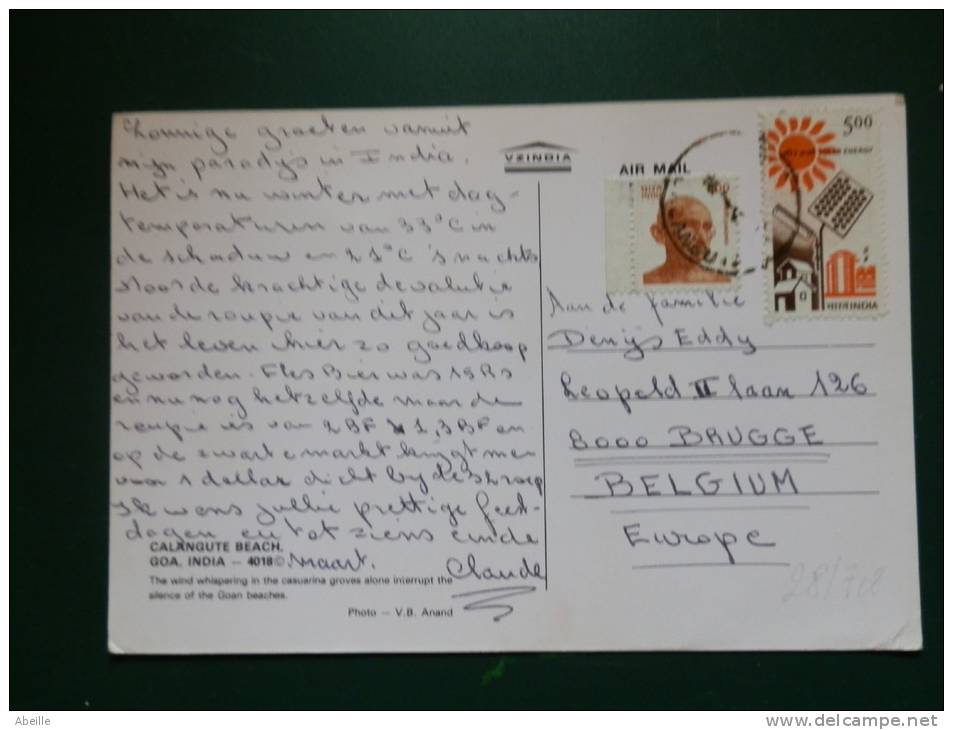 Zonnige groeten vanuit
mijn paradijs in India.
Het is nu winter met dag-
temperaturen van 33°C in
de schaduw en 21°C 's nachts
door de krachtige devaluatie
van de roupie van dit jaar is
het leven hier zo goedkoop
geworden. Fles Bier was
en nu nog hetzelfde maar de
roupie is van 2BF 1,3BF en
op de zwarte markt krijgt men
voor 1 dollar dicht bij de
Ik wens jullie prettige feest-
dagen en tot ziens einde
maart.
Claude
CALANGUTE BEACH,
GOA. INDIA – 4018 ©
The wind whispering in the casuarina groves alone interrupt the
silence of the Goan beaches.
Photo – V.B. Anand
INDIA
AIR MAIL
5.00
SOLAR ENERGY
भारत INDIA
Aan de familie
Denijs Eddy
Leopold II laan 126
8000 BRUGGE
BELGIUM
Europe
28/708
Abeille
www.delcampe.net